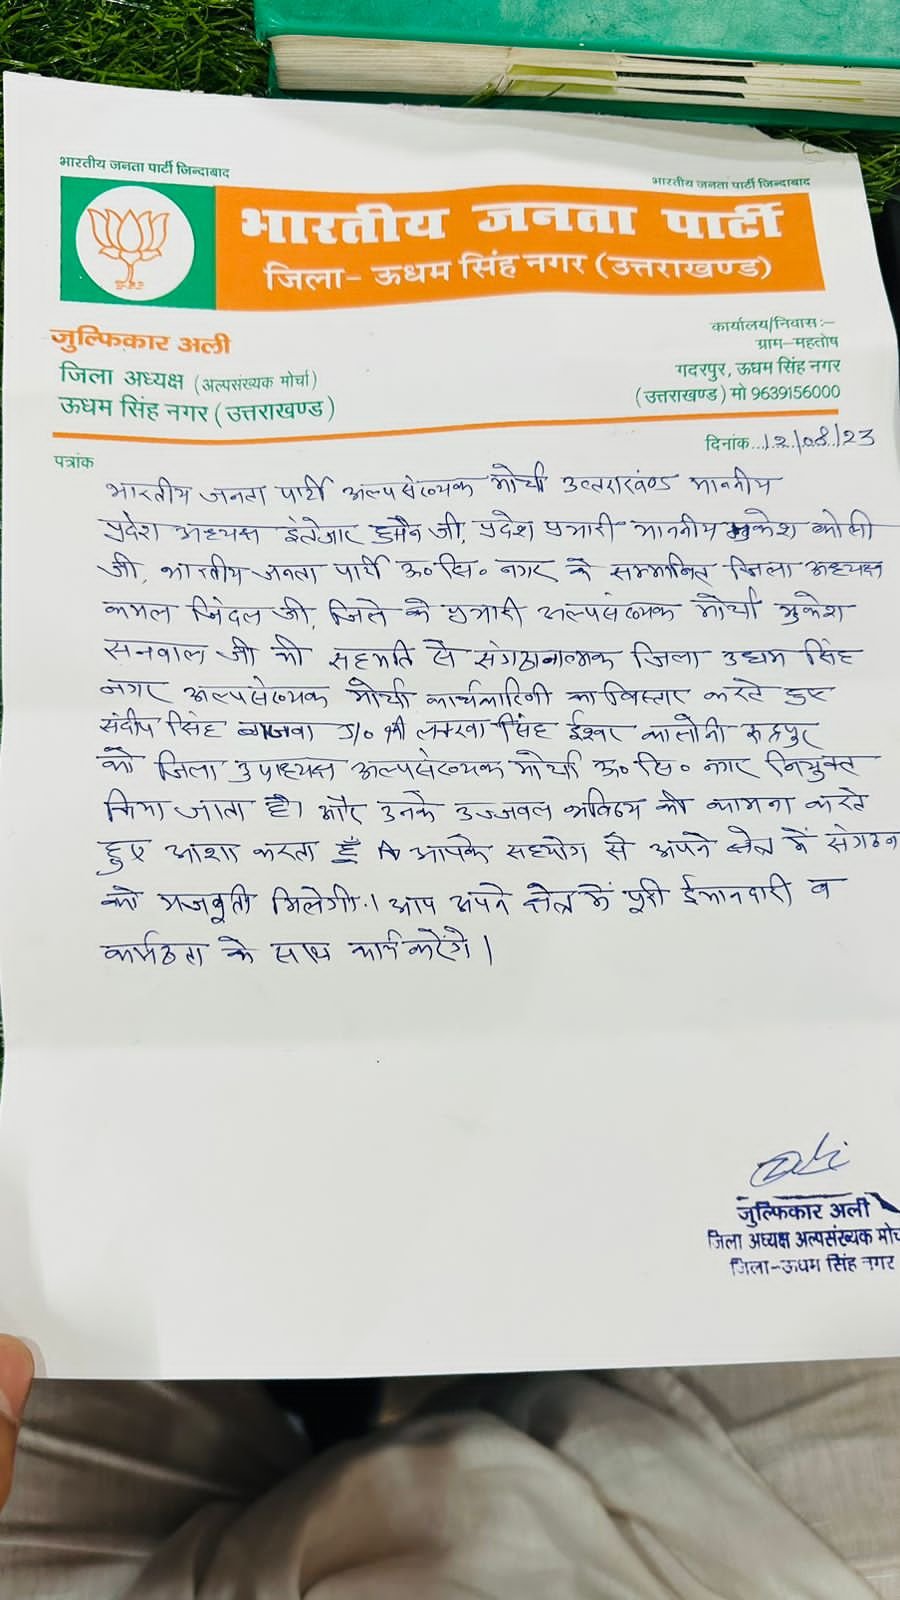 भारतीय जनता पार्टी जिन्दाबाद
भारतीय जनता पार्टी जिन्दाबाद
भारतीय जनता पार्टी
जिला- ऊधम सिंह नगर (उत्तराखण्ड)
जुल्फिकार अली
जिला अध्यक्ष (अल्पसंख्यक मोर्चा)
ऊधम सिंह नगर (उत्तराखण्ड)
कार्यालय/निवास :-
ग्राम-महतोष
गदरपुर, ऊधम सिंह नगर
(उत्तराखण्ड) मो 9639156000
पत्रांक
दिनांक...12/08/23
भारतीय जनता पार्टी अल्पसंख्यक मोर्चा उत्तराखण्ड माननीय
प्रदेश अध्यक्ष इंतेजार हुसैन जी, प्रदेश प्रभारी माननीय मुकेश कोली
जी, भारतीय जनता पार्टी ऊ० सि० नगर के सम्मानित जिला अध्यक्ष
कमल जिंदल जी, जिले के प्रभारी अल्पसंख्यक मोर्चा मुकेश
सनवाल जी की सहमति से संगठनात्मक जिला उधम सिंह
नगर अल्पसंख्यक मोर्चा कार्यकारिणी का विस्तार करते हुए
संदीप सिंह बाजवा S/० श्री लक्खा सिंह ईश्वर कालोनी रुद्रपुर
को जिला उपाध्यक्ष अल्पसंख्यक मोर्चा ऊ० सि० नगर नियुक्त
किया जाता है। और उनके उज्जवल भविष्य की कामना करते
हुए आशा करता हूँ आपके सहयोग से अपने क्षेत्र में संगठन
को मजबूती मिलेगी। आप अपने क्षेत्र में पूरी ईमानदारी व
कर्मठता के साथ कार्य करेंगे।
जुल्फिकार अली
जिला अध्यक्ष अल्पसंख्यक मोर्चा
जिला-ऊधम सिंह नगर